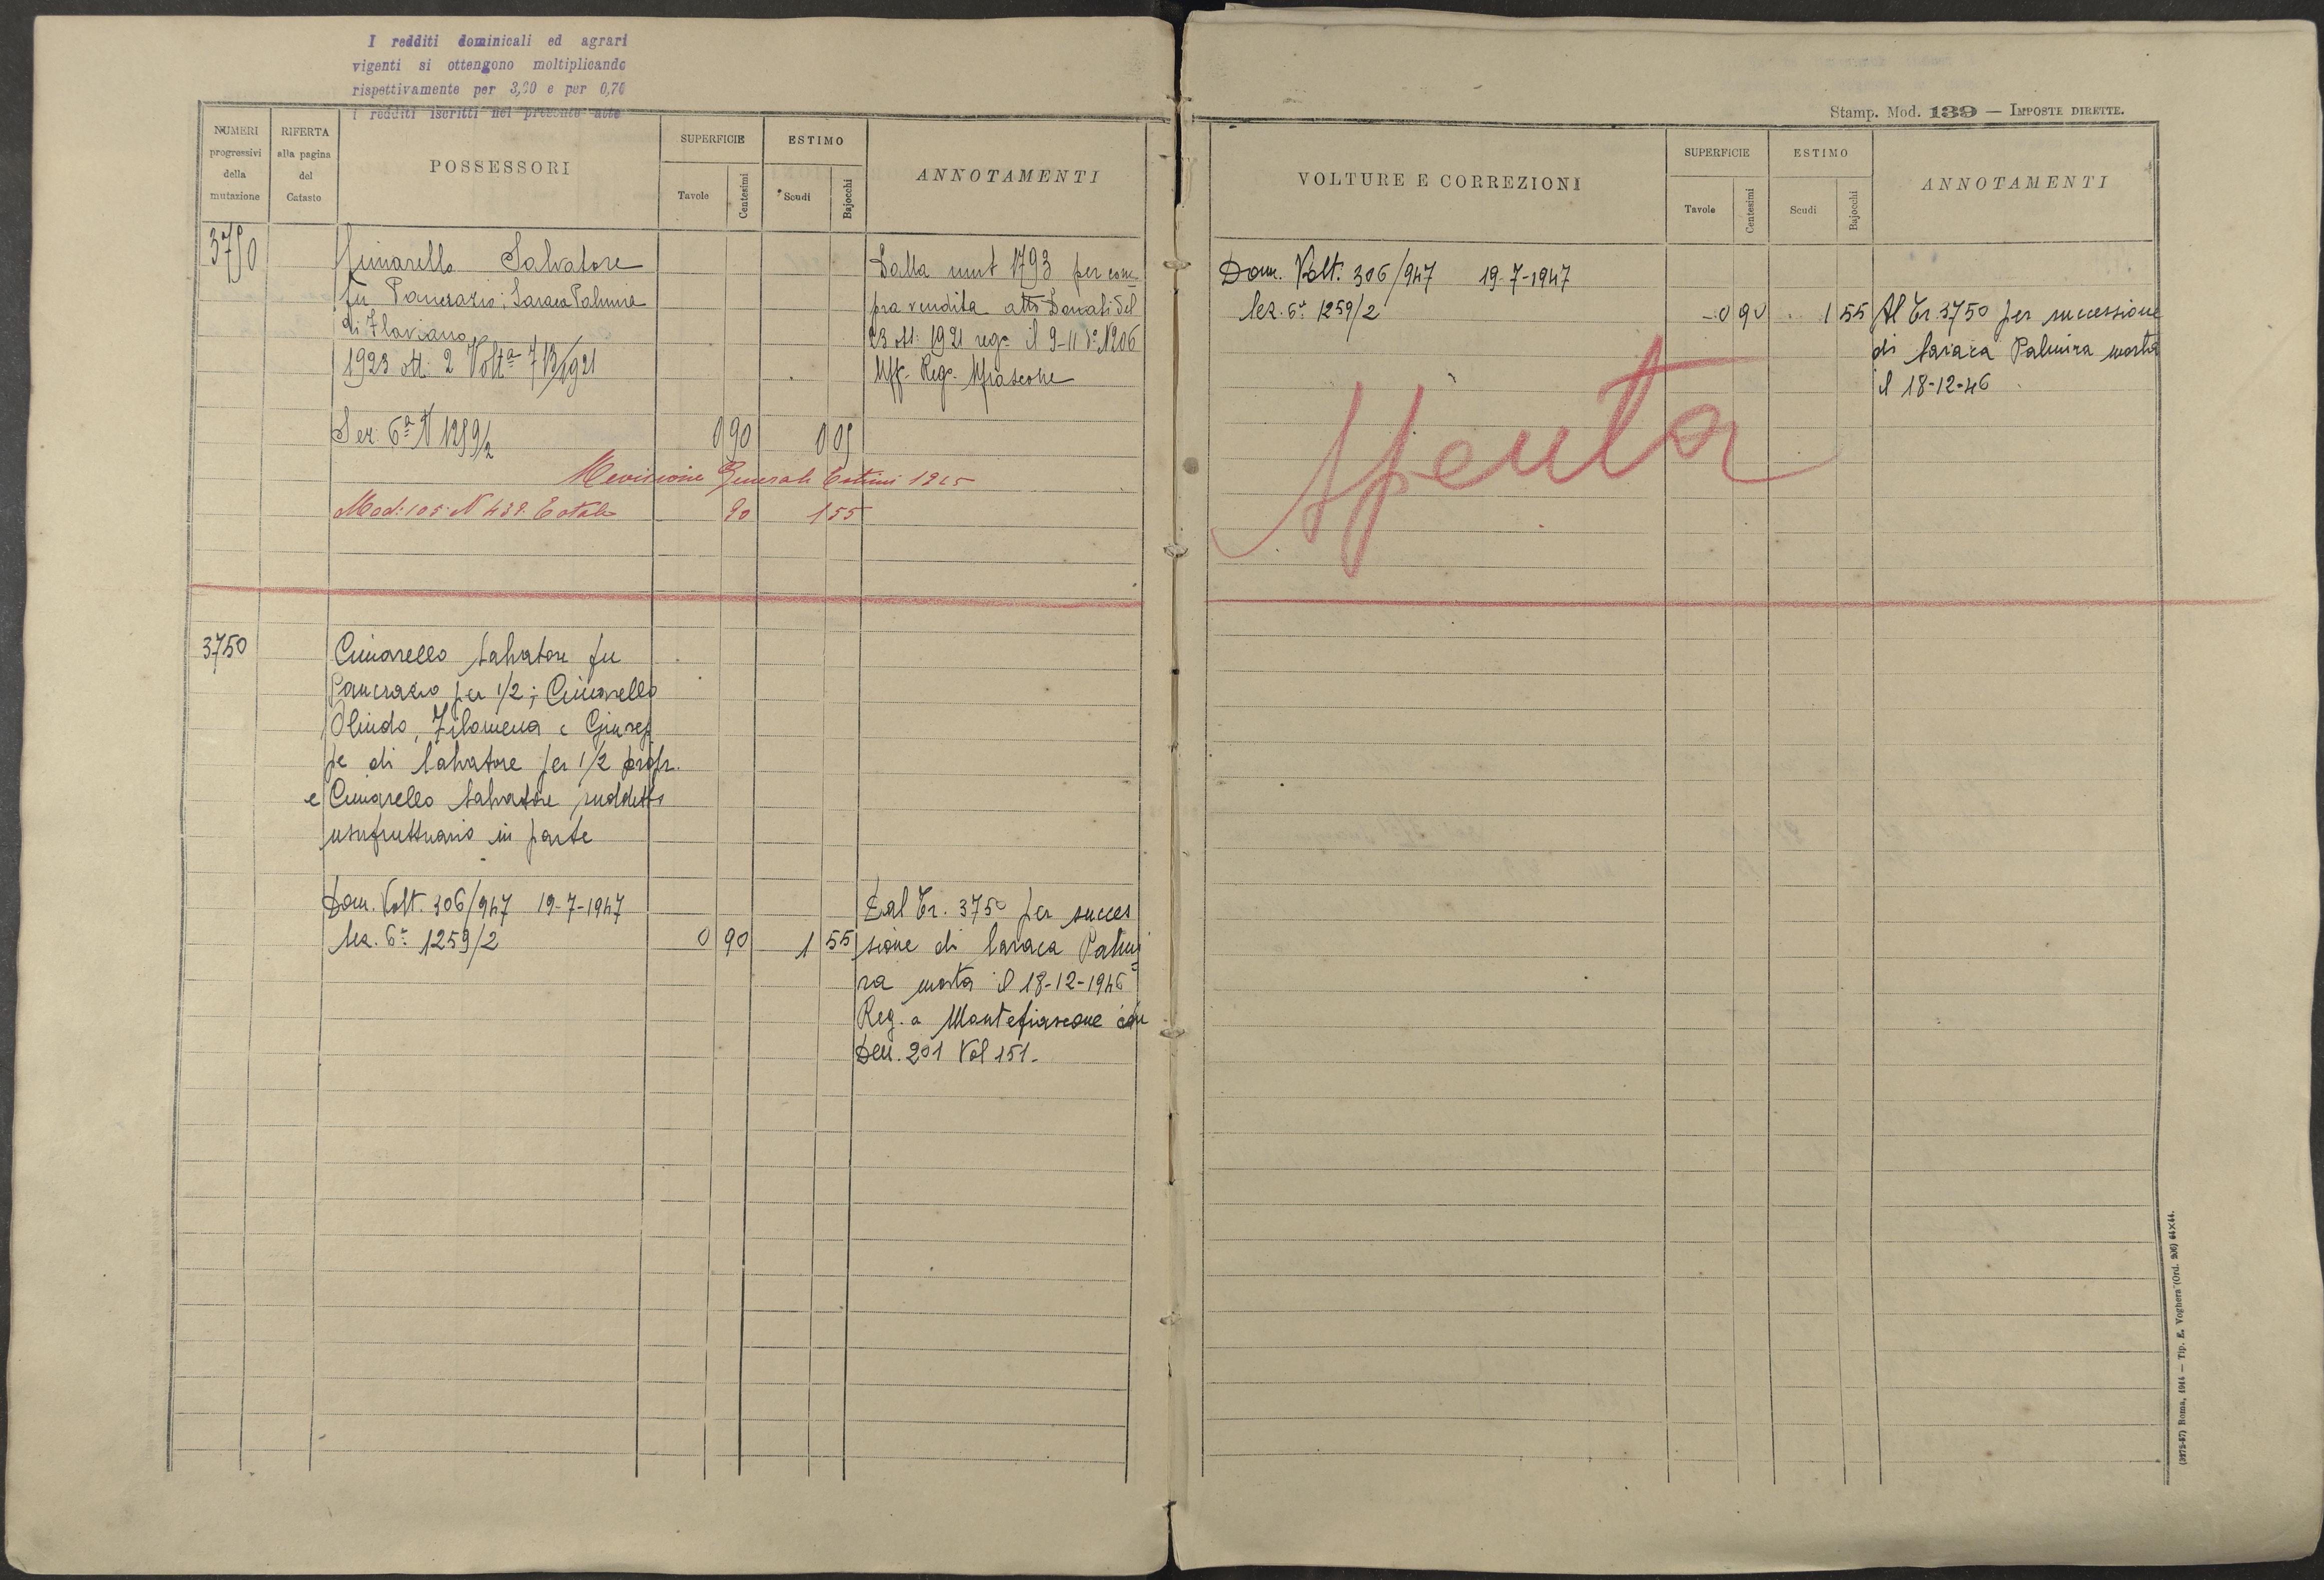 I redditi dominicali ed agrari
vigenti si ottengono moltiplicando
rispettivamente per 3,20 e per 0,70
i redditi iscritti nel presente atto
NUMERI progressivi della mutazione
RIFERTA alla pagina del Catasto
POSSESSORI
SUPERFICIE
Tavole
Centesimi
ESTIMO
Scudi
Bajocchi
ANNOTAMENTI
3750
Cimarello Salvatore
fu Pancrazio; Saraca Palmira
di Flaviano
1923 ott: 2 Voltª 713/921
Sez: 6ª N 1259/2 0 90 1 05
Dalla mut 1793 per com-
pra vendita atto Donati del
23 ott: 1921 rego il 9-11 do N 206
Uff. Rego Mfiascone
Revisione Generale Estimi 1925
Mod: 105: N 439. Totale 90 1 55
3750
Cimarello Salvatore fu
Pancrazio per 1/2; Cimarello
Olindo, Filomena e Giusep
pe di Salvatore per 1/2 propr.
e Cimarello Salvatore suddetto
usufruttuario in parte
Dom. Volt. 306/947 19-7-1947
Sez. 6ª 1259/2 0 90 1 55
Dal Tr. 3750 per succes
sione di Saraca Palmi
ra morta il 18-12-1946
Reg. a Montefiascone con
Den. 201 Vol 151.
Stamp. Mod. 139 — IMPOSTE DIRETTE.
VOLTURE E CORREZIONI
SUPERFICIE
Tavole
Centesimi
ESTIMO
Scudi
Bajocchi
ANNOTAMENTI
Dom. Volt. 306/947 19-7-1947
Sez. 6ª 1259/2 0 90 1 55
Al Tr. 3750 per successione
di Saraca Palmira morta
il 18-12-46
Spenta
(3972-57) Roma, 1914 — Tip. E. Voghera (Ord. 906) 64×44.